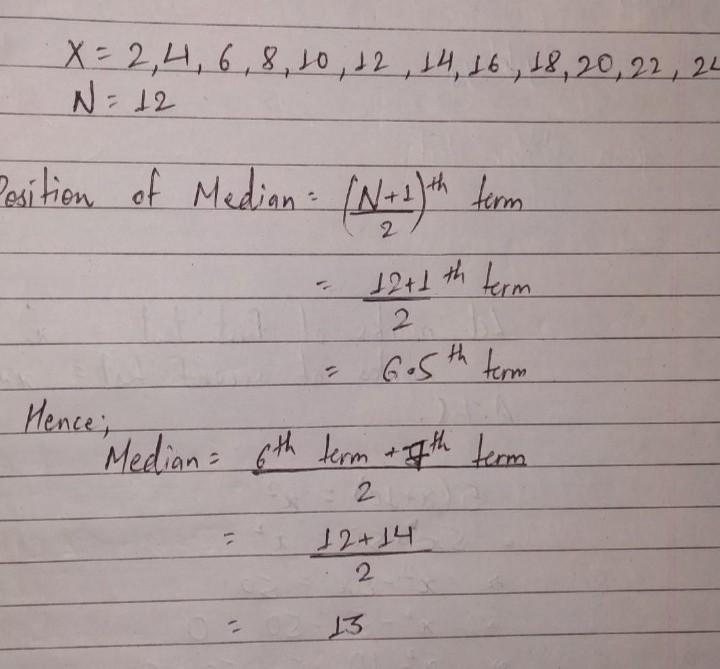 X = 2, 4, 6, 8, 10, 12, 14, 16, 18, 20, 22, 24
N = 12
Position of Median = (N+1/2)th term
= 12+1/2 th term
= 6.5th term
Hence;
Median = 6th term + 7th term / 2
= 12+14 / 2
= 13